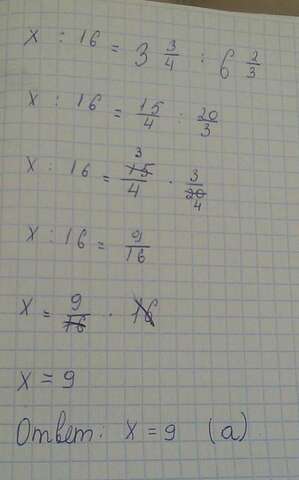 x : 16 = 3 3/4 : 6 2/3
x : 16 = 15/4 : 20/3
x : 16 = 3 15/4 · 3/20 4
x : 16 = 9/16
x = 9/16 · 16
x = 9
Ответ: x = 9 (а)